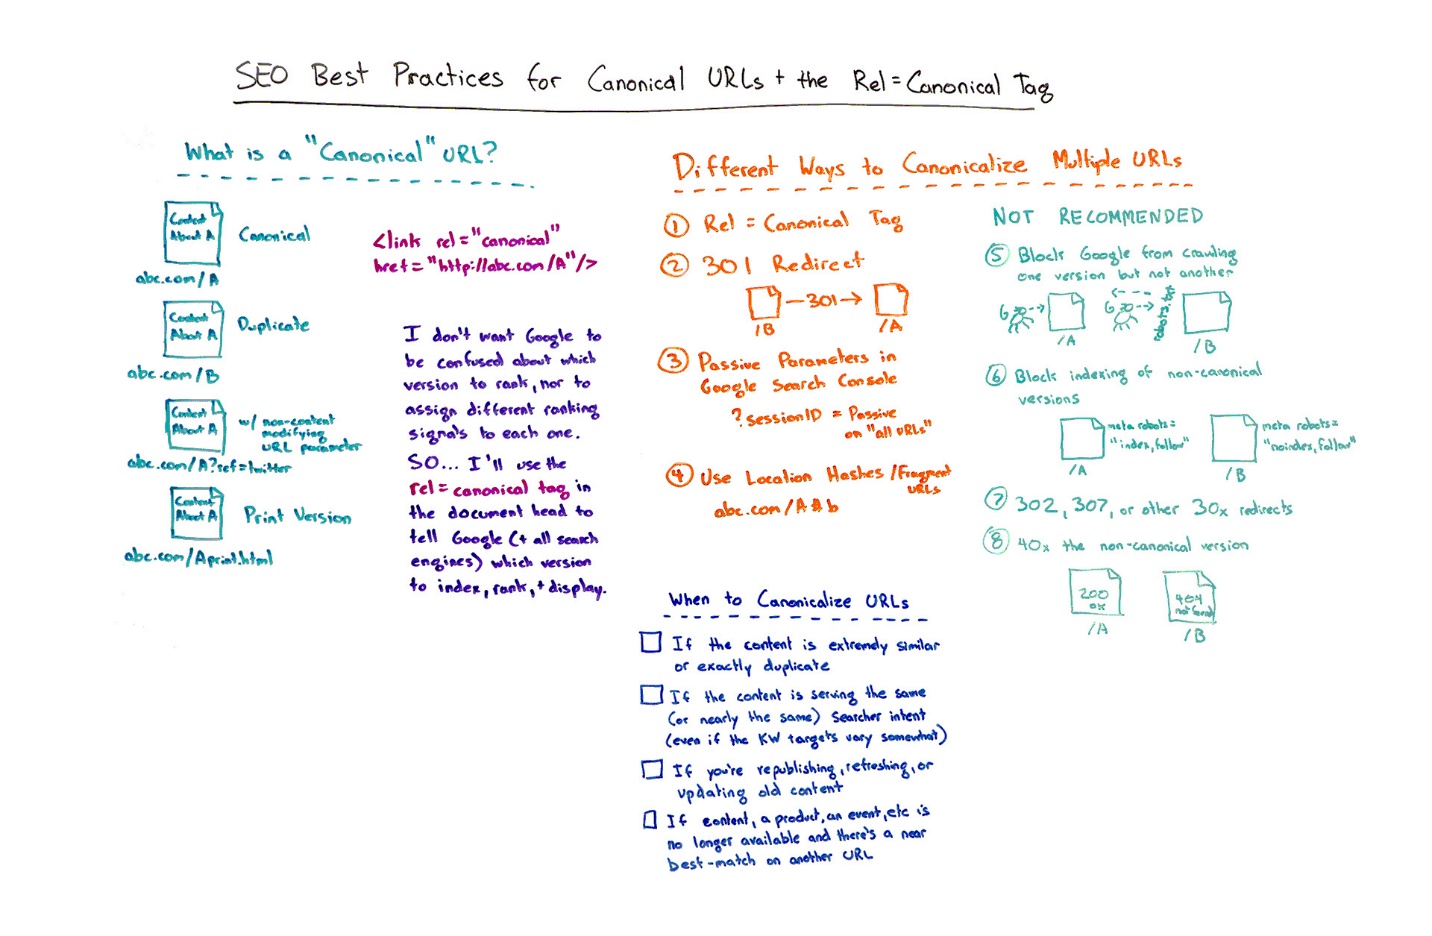 SEO Best Practices for Canonical URLs + the Rel=Canonical Tag
What is a "Canonical" URL?
Content
About A
Canonical
abc.com/A
Content
About A
Duplicate
abc.com/B
Content
About A
w/ non-content
modifying
URL parameter
abc.com/A?ref=twitter
Content
About A
Print Version
abc.com/Aprint.html
<link rel="canonical"
href="http://abc.com/A"/>
I don't want Google to
be confused about which
version to rank, nor to
assign different ranking
signals to each one.
SO... I'll use the
rel=canonical tag in
the document head to
tell Google (+ all search
engines) which version
to index, rank, + display.
Different Ways to Canonicalize Multiple URLs
1 Rel = Canonical Tag
2 301 Redirect
— 301 →
/B
/A
3 Passive Parameters in
Google Search Console
?sessionID = Passive
on "all URLs"
4 Use Location Hashes /Fragment
URLs
abc.com/A#b
NOT RECOMMENDED
5 Blocks Google from crawling
one version but not another
/A
robots.txt
/B
6 Block indexing of non-canonical
versions
meta robots=
"index,follow"
/A
meta robots=
"noindex,follow"
/B
7 302, 307, or other 30x redirects
8 40x the non-canonical version
200
OK
/A
404
not found
/B
When to Canonicalize URLs
If the content is extremely similar
or exactly duplicate
If the content is serving the same
(or nearly the same) searcher intent
(even if the KW targets vary somewhat)
If you're republishing, refreshing, or
updating old content
If content, a product, an event, etc is
no longer available and there's a near
best-match on another URL